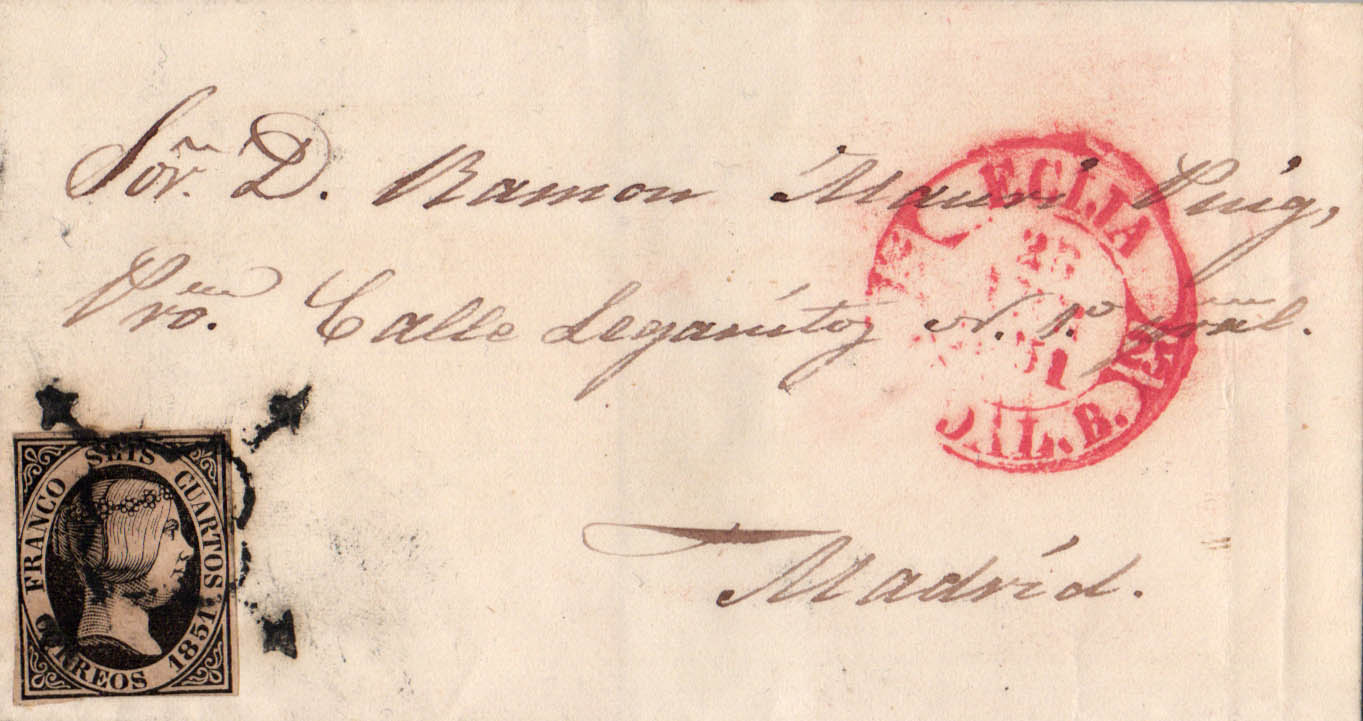 Sor. D. Ramon Mauri Puig,
Pro. Calle Leganitos N. 1º pral.
Madrid.
ECIJA
25
51
25
JAL. B.
FRANCO SEIS CUARTOS 1851
CORREOS